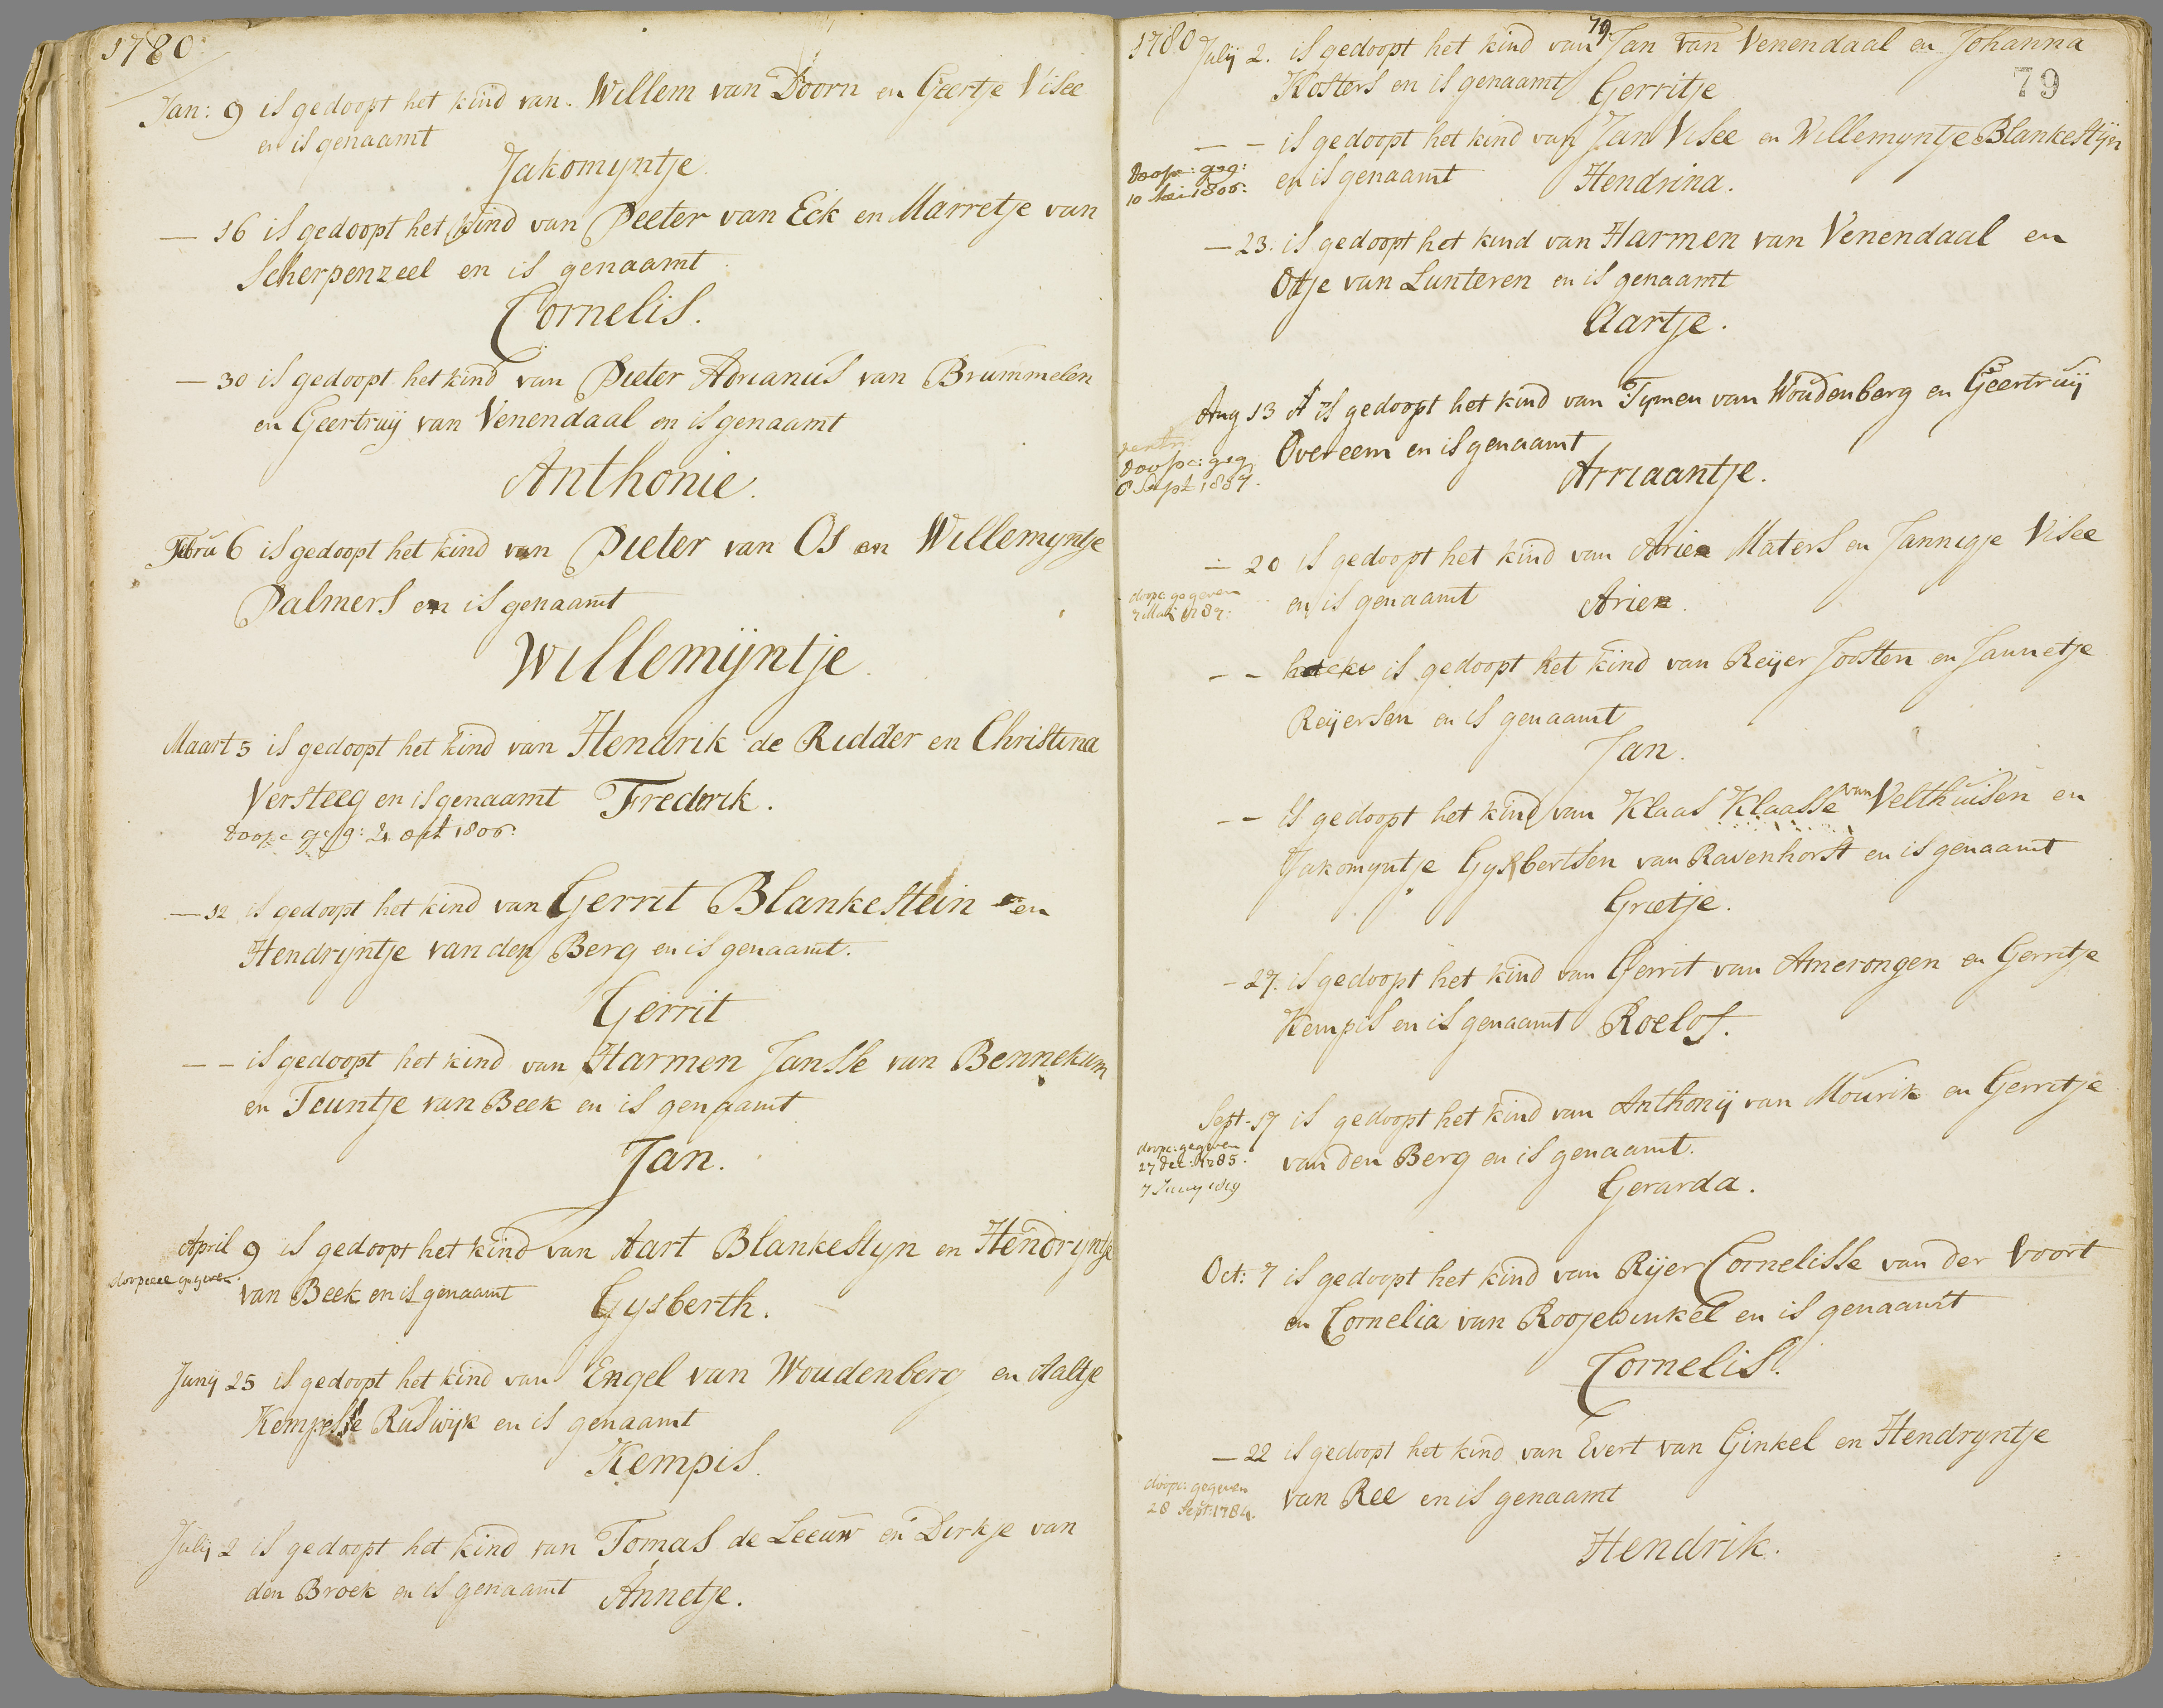 1780
Jan: 9 is gedoopt het kind van Willem van Doorn en Geertje Visee
en is genaamt
Jakomyntje
— 16 is gedoopt het kind van Peeter van Eck en Marretje van
Scherpenzeel en is genaamt
Cornelis.
— 30 is gedoopt het kind van Pieter Adrianus van Brummelen
en Geertruij van Venendaal en is genaamt
Anthonie.
Febru 6 is gedoopt het kind van Pieter van Os en Willemyntje
Palmers en is genaamt
Willemijntje.
Maart 5 is gedoopt het kind van Hendrik de Ridder en Christina
Versteeg en is genaamt Fredrik.
doopc geg: 21 oct 1806.
— 12 is gedoopt het kind van Gerrit Blankestein en
Hendryntje van den Berg en is genaamt.
Gerrit
— — is gedoopt het kind van Harmen Jansse van Bennekum
en Teuntje van Beek en is genaamt
Jan.
April 9 is gedoopt het kind van Aart Blankestyn en Hendryntje
doopceel gegeven.
van Beek en is genaamt Gysberth.
Juny 25 is gedoopt het kind van Engel van Woudenberg en Aaltje
Kempesse Ruswijk en is genaamt
Kempis.
July 2 is gedoopt het kind van Tomas de Leeuw en Dirkje van
den Broek en is genaamt Annetje.
79
1780 July 2. is gedoopt het kind van Jan van Venendaal en Johanna
Kosters en is genaamt Gerritje
79
— — is gedoopt het kind van Jan Visee en Willemyntje Blankestijn
doopc: geg:
10 Mei 1806.
en is genaamt Hendrina.
— 23. is gedoopt het kind van Harmen van Venendaal en
Otje van Lunteren en is genaamt
Aartje.
Aug 13 is gedoopt het kind van Tymen van Woudenberg en Geertruij
doopc: geg
8 Sept
Overeem en is genaamt
Arriaantje.
— 20 is gedoopt het kind van Arien Maters en Jannigje Visee
doopc gegeven
en is genaamt Arien.
— — is gedoopt het kind van Reijer Joosten en Jannetje
Reijersen en is genaamt
Jan.
— — is gedoopt het kind van Klaas Klaasse van Velthuisen en
Jakomyntje Gysbertsen van Ravenhorst en is genaamt
Grietje.
— 27. is gedoopt het kind van Gerrit van Amerongen en Gerritje
Kempis en is genaamt Roelof.
Sept - 17 is gedoopt het kind van Anthonij van Mourik en Gerritje
doopc: gegeven
27 dec: 1785.
van den Berg en is genaamt.
Gerarda.
Oct: 7 is gedoopt het kind van Rijer Cornelisse van der Voort
en Cornelia van Roojewinkel en is genaamt
Cornelis.
— 22 is gedoopt het kind van Evert van Ginkel en Hendryntje
doopc: gegeven
28 Sept: 1784.
van Ree en is genaamt
Hendrik.